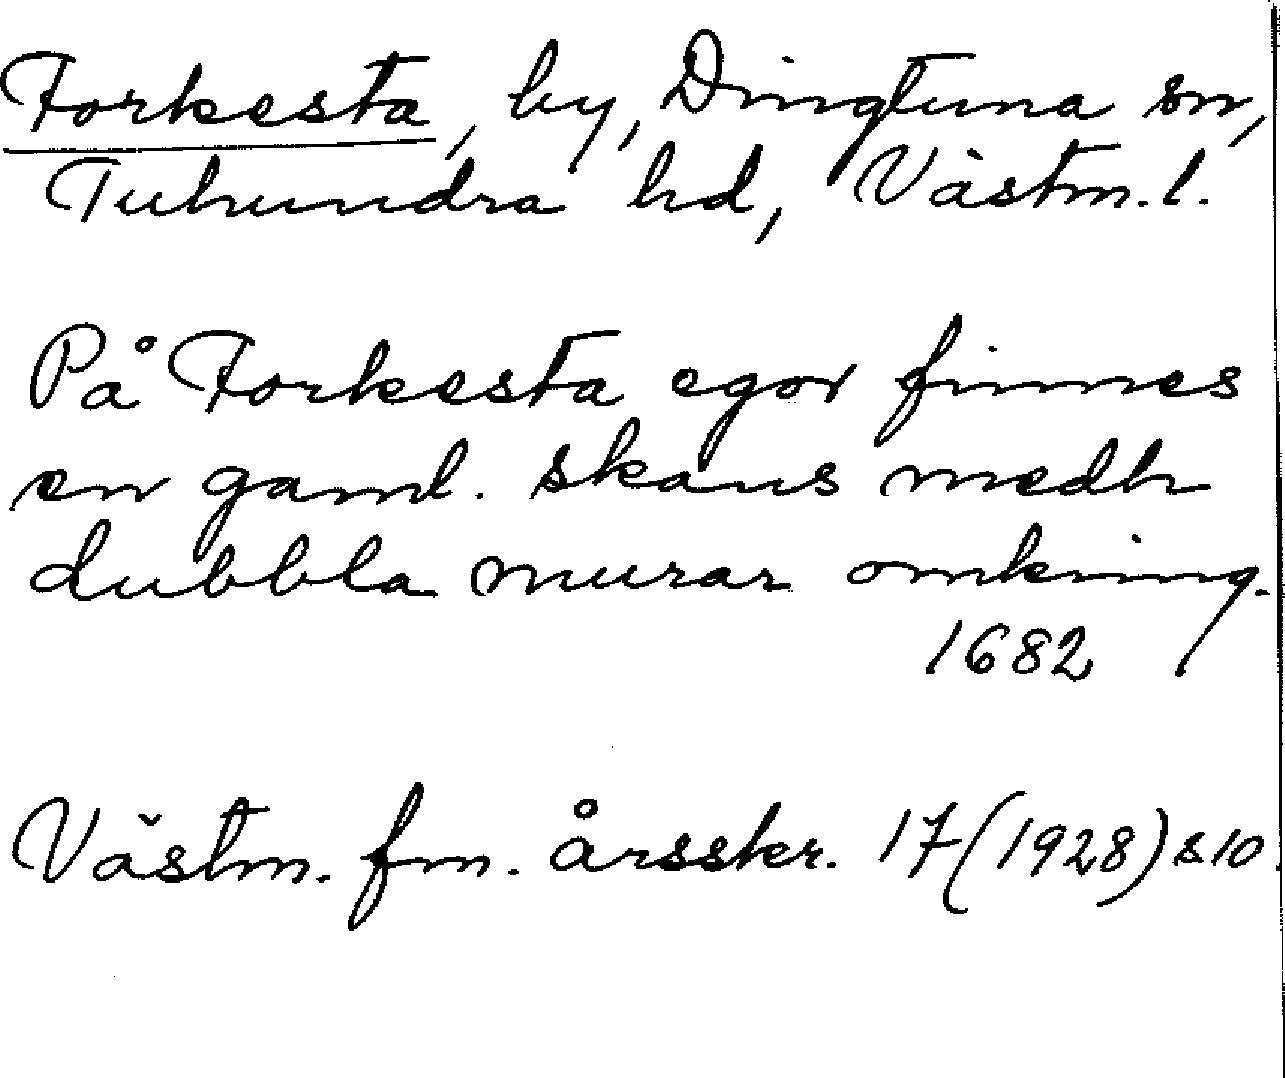 Forkesta, by, Dingtuna sn,
Tuhundra hd, Västm. l.
På Forkesta egor finnes
en gaml. skans medh
dubbla murar omkring.
1682
Västm. fm. årsskr. 17 (1928) s 10.